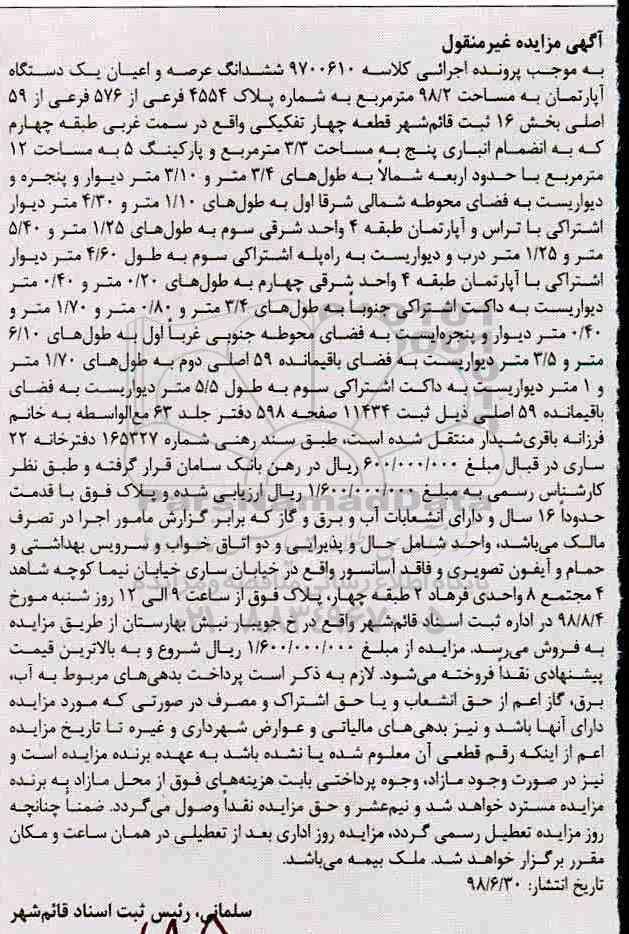 آگهی مزایده غیرمنقول
به موجب پرونده اجرائی کلاسه ۹۷۰۰۶۱۰ ششدانگ عرصه و اعیان یک دستگاه
آپارتمان به مساحت ۹۸/۲ مترمربع به شماره پلاک ۴۵۵۴ فرعی از ۵۷۶ فرعی از ۵۹
اصلی بخش ۱۶ ثبت قائم‌شهر قطعه چهار تفکیکی واقع در سمت غربی طبقه چهارم
که به انضمام انباری پنج به مساحت ۳/۳ مترمربع و پارکینگ ۵ به مساحت ۱۲
مترمربع با حدود اربعه شمالاً به طول‌های ۳/۴ متر و ۳/۱۰ متر دیوار و پنجره و
دیواریست به فضای محوطه شمالی شرقا اول به طول‌های ۱/۱۰ متر و ۴/۳۰ متر دیوار
اشتراکی با تراس و آپارتمان طبقه ۴ واحد شرقی سوم به طول‌های ۱/۲۵ متر و ۵/۴۰
متر و ۱/۲۵ متر درب و دیواریست به راه‌پله اشتراکی سوم به طول ۴/۶۰ متر دیوار
اشتراکی با آپارتمان طبقه ۴ واحد شرقی چهارم به طول‌های ۰/۲۰ متر و ۰/۴۰ متر
دیواریست به داکت اشتراکی جنوباً به طول‌های ۳/۴ متر و ۰/۸۰ متر و ۱/۷۰ متر و
۰/۴۰ متر دیوار و پنجره‌ایست به فضای محوطه جنوبی غرباً اول به طول‌های ۶/۱۰
متر و ۳/۵ متر دیواریست به فضای باقیمانده ۵۹ اصلی دوم به طول‌های ۱/۷۰ متر
و ۱ متر دیواریست به داکت اشتراکی سوم به طول ۵/۵ متر دیواریست به فضای
باقیمانده ۵۹ اصلی ذیل ثبت ۱۱۴۳۴ صفحه ۵۹۸ دفتر جلد ۶۳ مع‌الواسطه به خانم
فرزانه باقری‌شیدار منتقل شده است، طبق سند رهنی شماره ۱۶۵۳۲۷ دفترخانه ۲۲
ساری در قبال مبلغ ۶۰۰/۰۰۰/۰۰۰ ریال در رهن بانک سامان قرار گرفته و طبق نظر
کارشناس رسمی به مبلغ ۱/۶۰۰/۰۰۰/۰۰۰ ریال ارزیابی شده و پلاک فوق با قدمت
حدوداً ۱۶ سال و دارای انشعابات آب و برق و گاز که برابر گزارش مأمور اجرا در تصرف
مالک می‌باشد، واحد شامل حال و پذیرایی و دو اتاق خواب و سرویس بهداشتی و
حمام و آیفون تصویری و فاقد آسانسور واقع در خیابان ساری خیابان نیما کوچه شاهد
۴ مجتمع ۸ واحدی فرهاد ۲ طبقه چهار، پلاک فوق از ساعت ۹ الی ۱۲ روز شنبه مورخ
۹۸/۸/۴ در اداره ثبت اسناد قائم‌شهر واقع در خ جویبار نبش بهارستان از طریق مزایده
به فروش می‌رسد. مزایده از مبلغ ۱/۶۰۰/۰۰۰/۰۰۰ ریال شروع و به بالاترین قیمت
پیشنهادی نقداً فروخته می‌شود. لازم به ذکر است پرداخت بدهی‌های مربوط به آب،
برق، گاز اعم از حق انشعاب و یا حق اشتراک و مصرف در صورتی که مورد مزایده
دارای آنها باشد و نیز بدهی‌های مالیاتی و عوارض شهرداری و غیره تا تاریخ مزایده
اعم از اینکه رقم قطعی آن معلوم شده یا نشده باشد به عهده برنده مزایده است و
نیز در صورت وجود مازاد، وجوه پرداختی بابت هزینه‌های فوق از محل مازاد به برنده
مزایده مسترد خواهد شد و نیم‌عشر و حق مزایده نقداً وصول می‌گردد. ضمناً چنانچه
روز مزایده تعطیل رسمی گردد، مزایده روز اداری بعد از تعطیلی در همان ساعت و مکان
مقرر برگزار خواهد شد. ملک بیمه می‌باشد.
تاریخ انتشار: ۹۸/۶/۳۰
سلمانی، رئیس ثبت اسناد قائم‌شهر